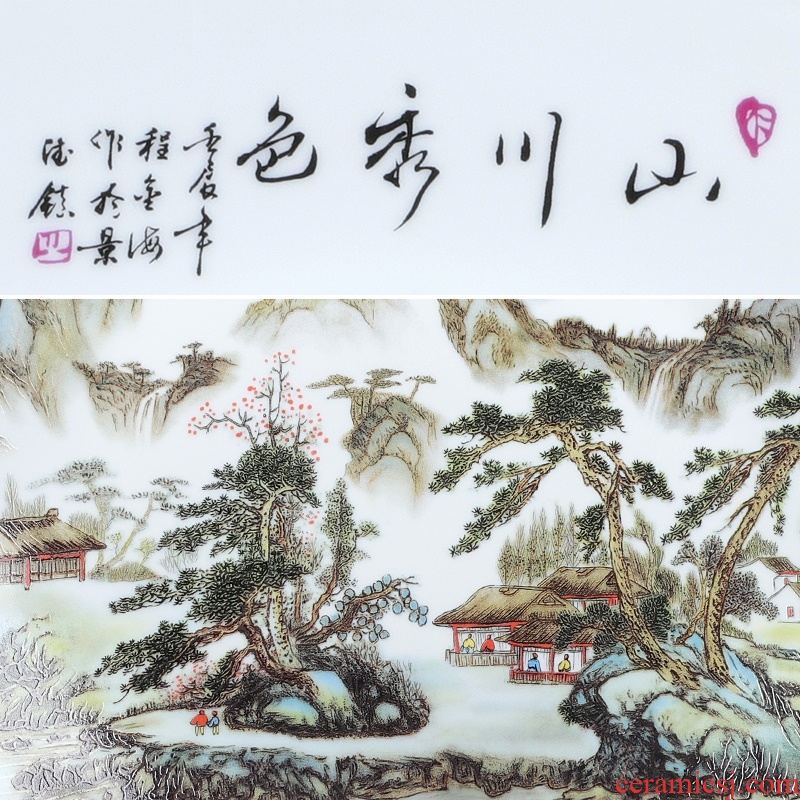 山川秀色
壬辰年
程金海
作於景
德鎮
ceramicsj.com